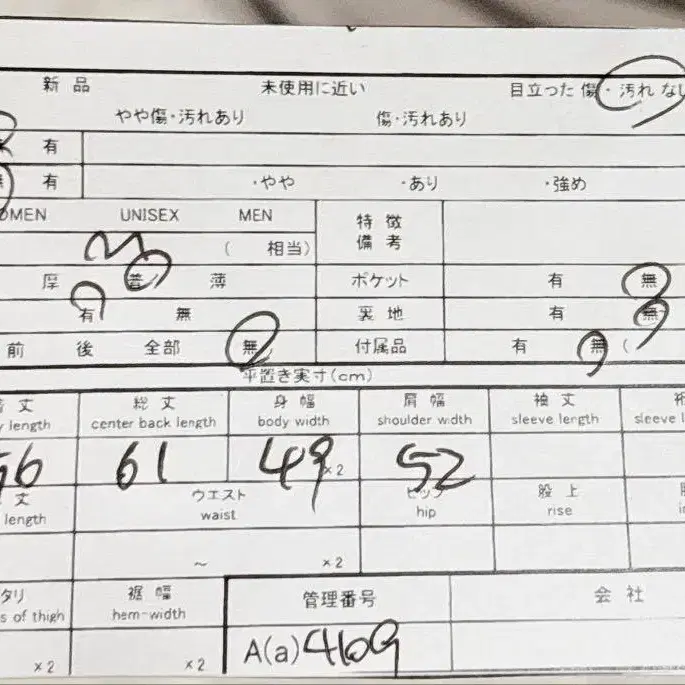 新品 未使用に近い 目立った傷・汚れなし
やや傷・汚れあり 傷・汚れあり
有
有 ・やや ・あり ・強め
OMEN UNISEX MEN 特徴
( 相当) 備考
厚 普 薄 ポケット 有 無
有 無 裏地 有 無
前 後 全部 無 付属品 有 無 (
平置き実寸(cm)
着丈 総丈 身幅 肩幅 袖丈 裄
y length center back length body width shoulder width sleeve length sleeve l
56 61 49 ×2 52
丈 ウエスト ヒップ 股上 股
length waist hip rise in
～ ×2
タリ 裾幅 管理番号 会社
s of thigh hem-width
×2 ×2 A(a) 4109